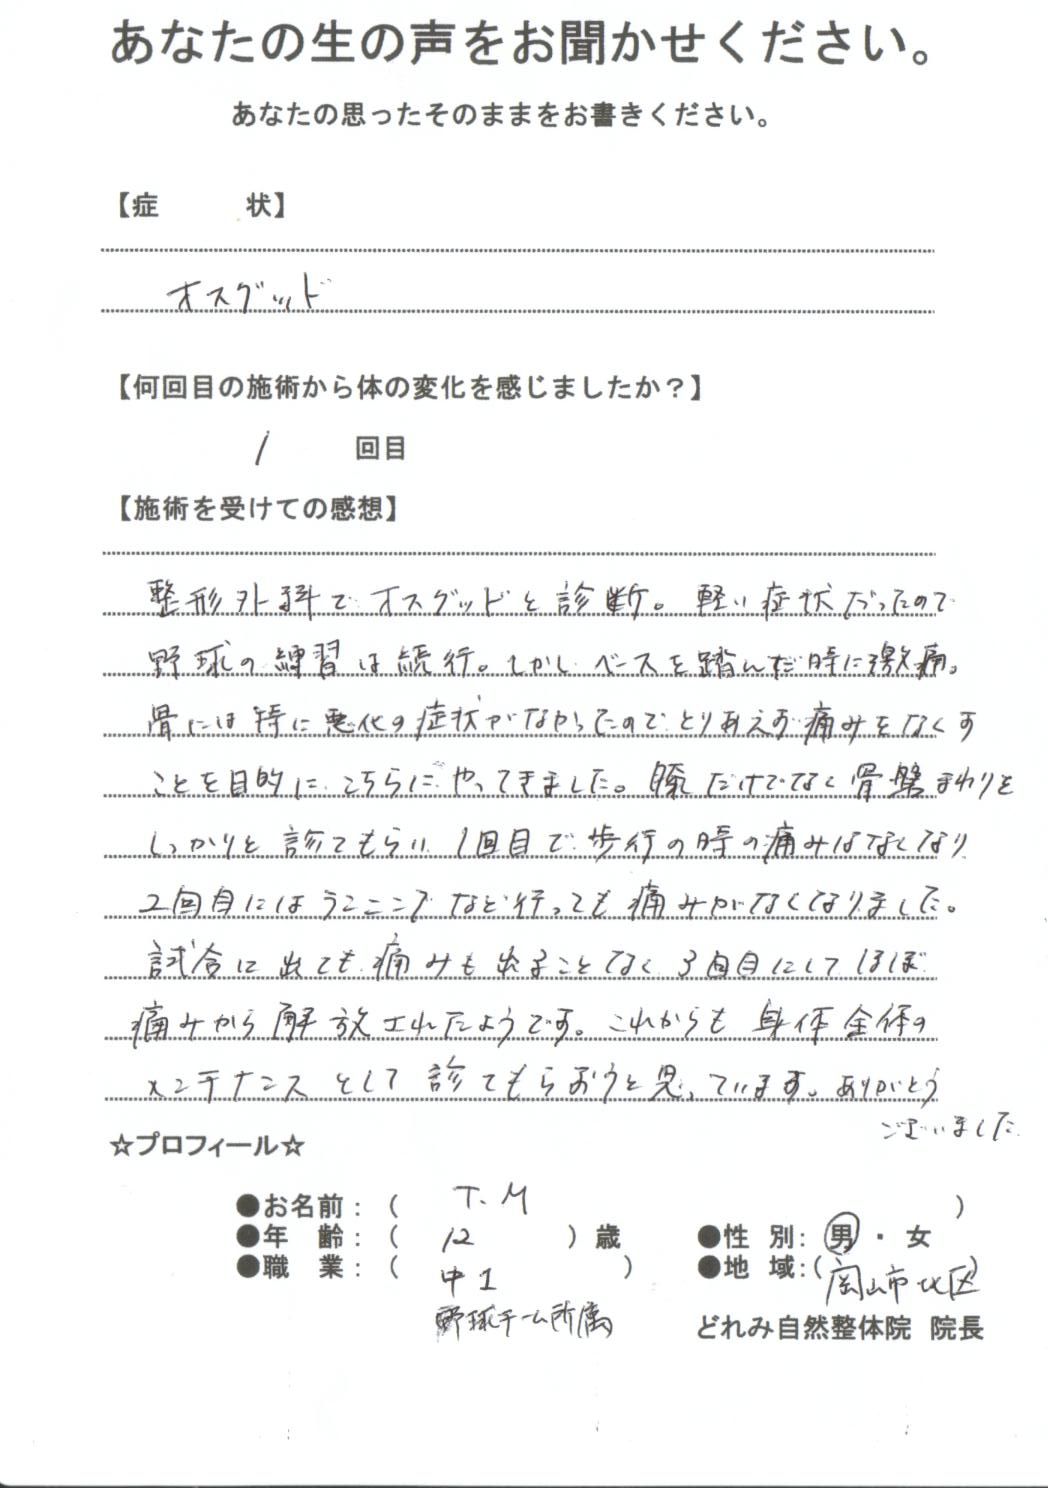 あなたの生の声をお聞かせください。
あなたの思ったそのままをお書きください。
【症　　状】
オスグッド
【何回目の施術から体の変化を感じましたか？】
1 回目
【施術を受けての感想】
整形外科でオスグッドと診断。軽い症状だったので
野球の練習は続行。しかしベースを踏んだ時に激痛。
骨には特に悪化の症状がなかったのでとりあえず痛みをなくす
ことを目的に、こちらにやってきました。膝だけでなく骨盤まわりを
しっかりと診てもらい、1回目で歩行の時の痛みはなくなり
2回目にはランニングなど行っても痛みがなくなりました。
試合に出ても痛みも出ることなく、3回目にしてほぼ
痛みから解放されたようです。これからも身体全体の
メンテナンスとして診てもらおうと思っています。ありがとう
ございました
☆プロフィール☆
●お名前：（ T.M ）
●年　齢：（ 12 ）歳 ●性　別：男・女
●職　業：（ 中1 ） ●地　域：（岡山市北区）
野球チーム所属
どれみ自然整体院　院長